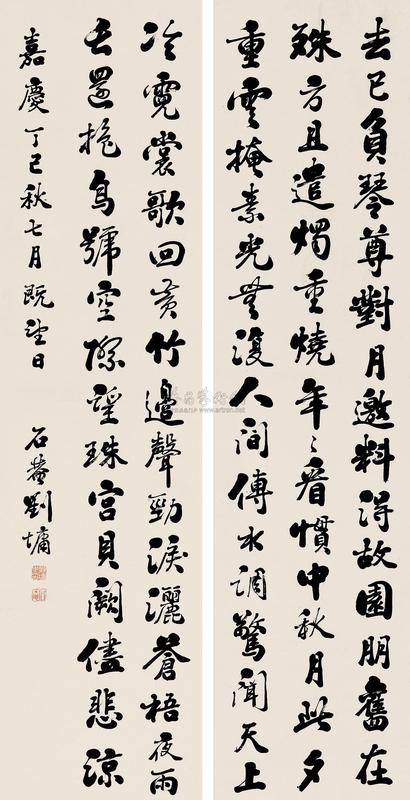 去已負琴尊對月邀料得故園朋舊在
殊方且遣燭重燒年〻看慣中秋月此夕
重雲掩素光無復人間傳水調驚聞天上
冷霓裳歌回黃竹邊聲勁淚灑蒼梧夜雨
長還抱烏號空際望珠宮貝闕儘悲涼
嘉慶丁巳秋七月既望日 石菴劉墉
www.artron.net